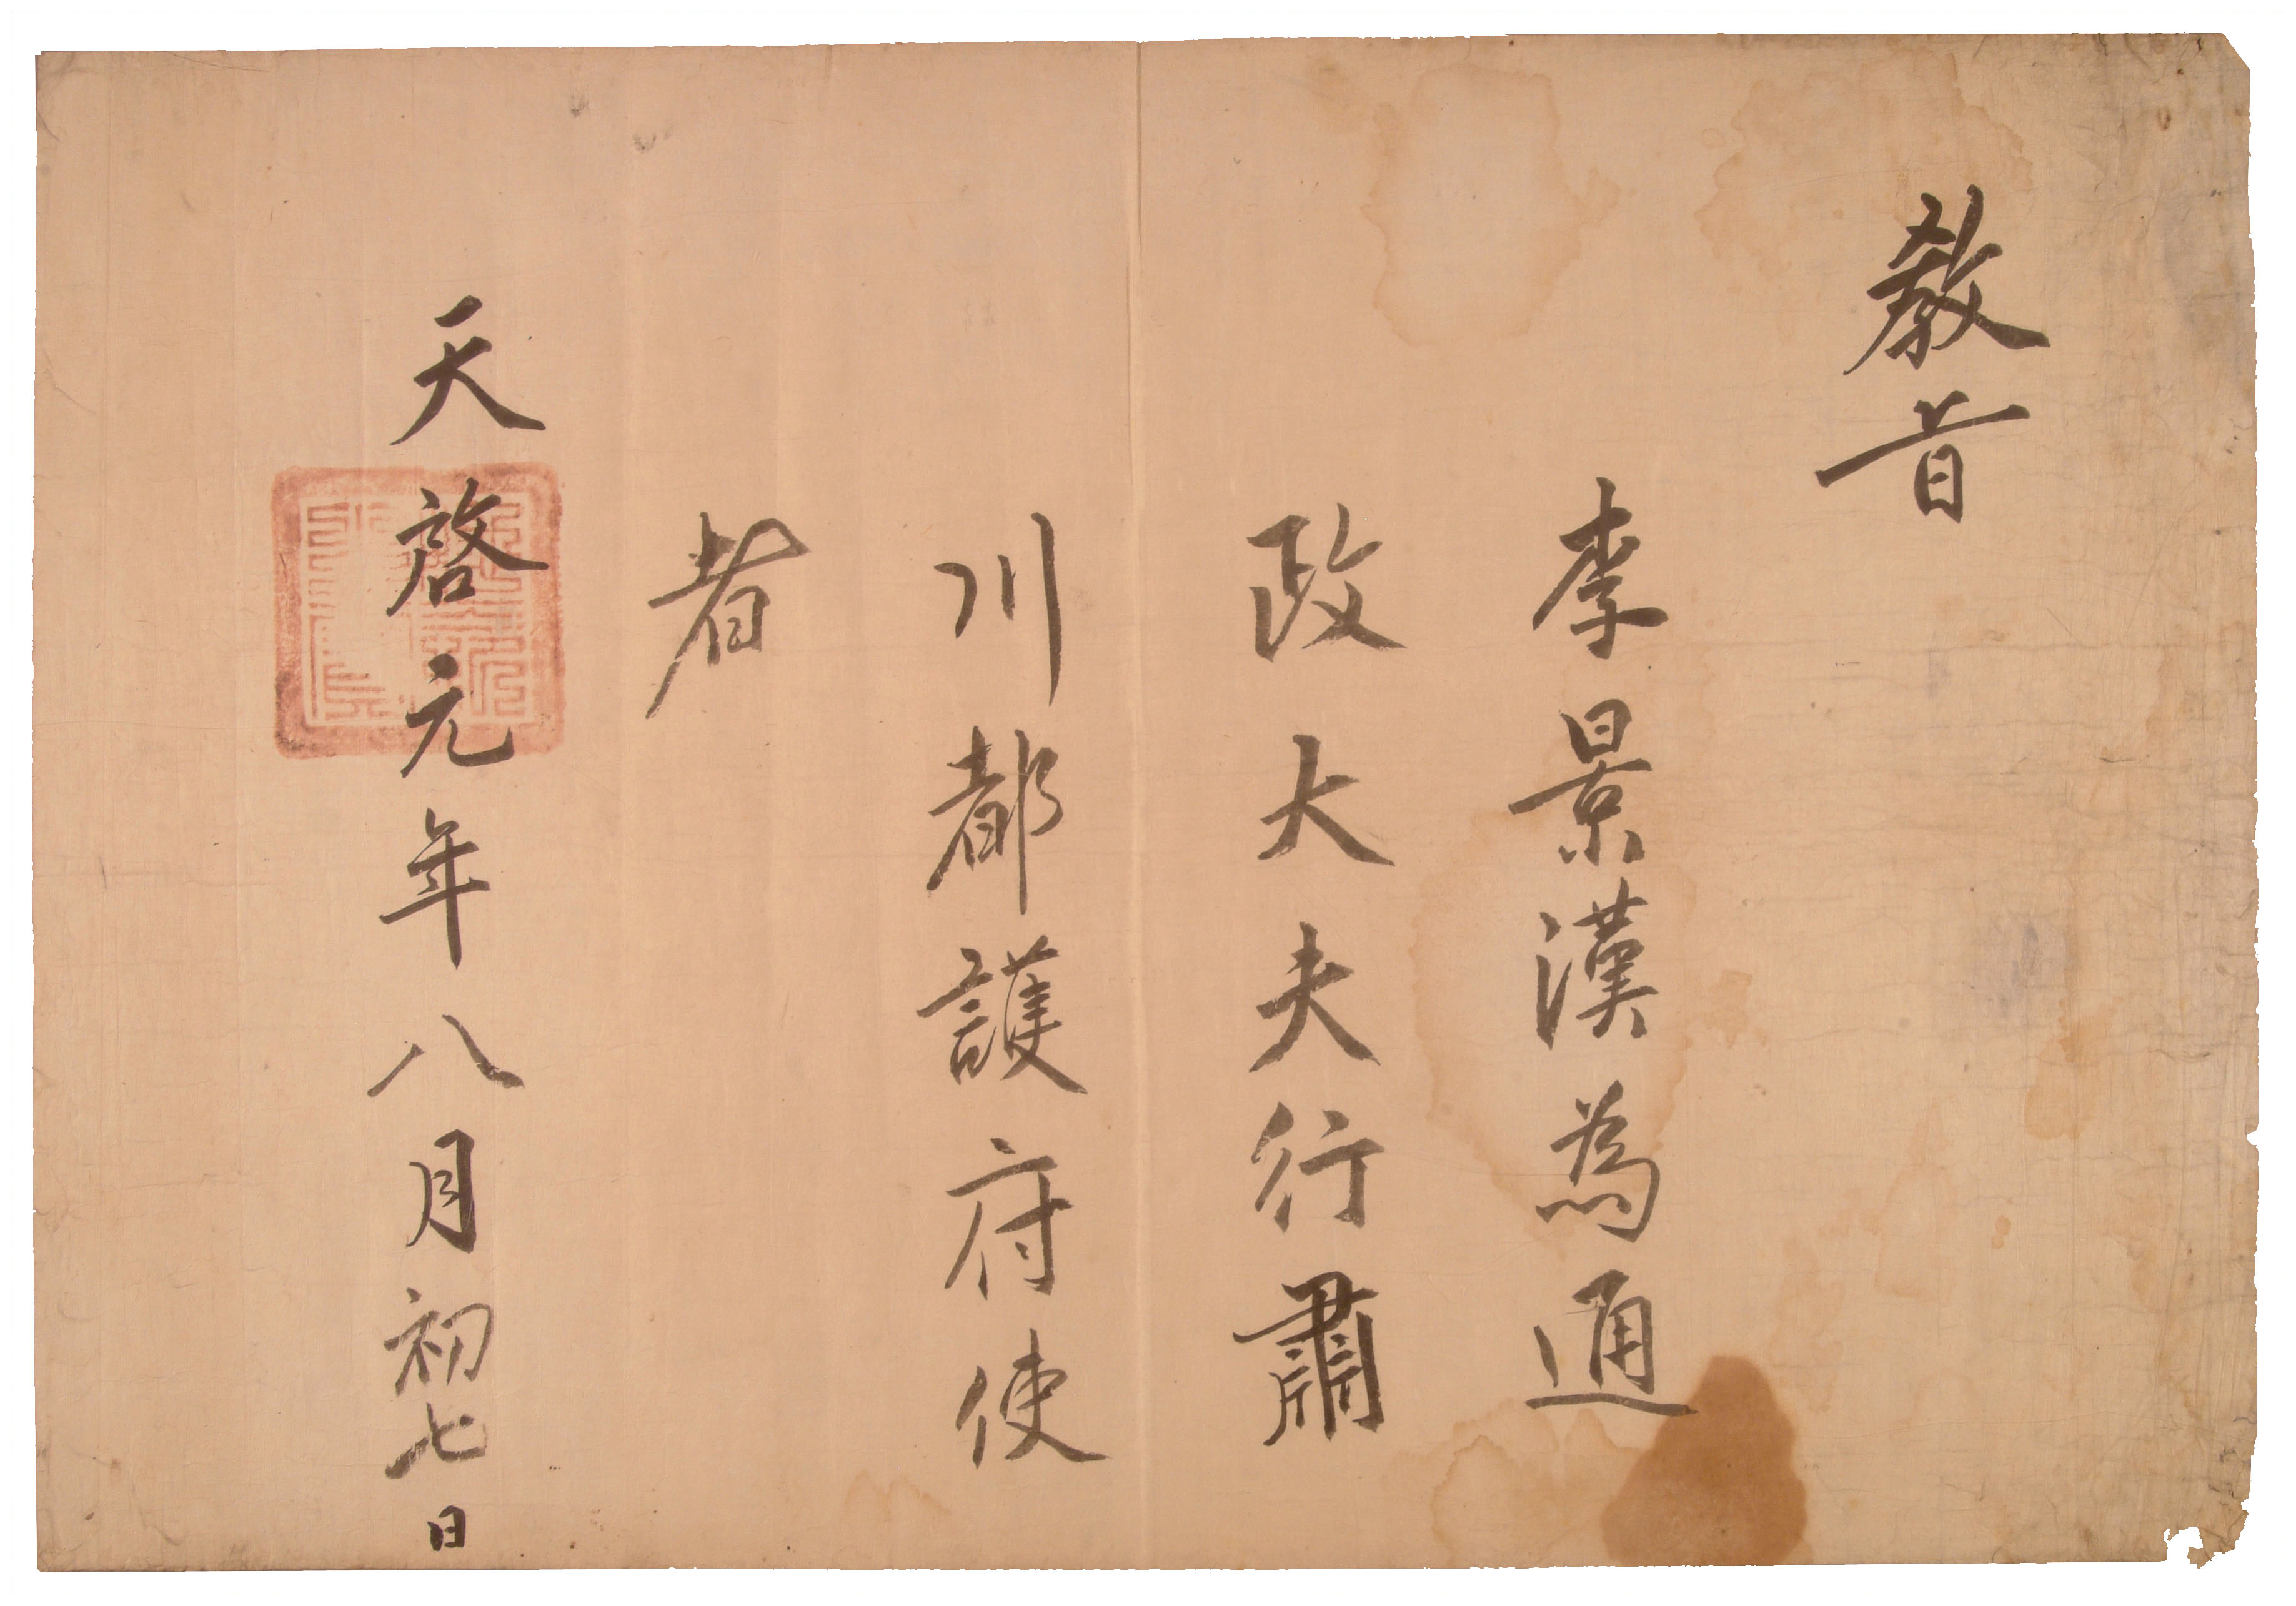 教旨
李景漢為通
政大夫行肅
川都護府使
者
天啓元年八月初七日